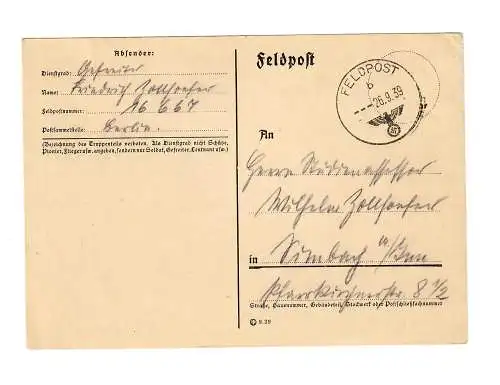 Absender:
Dienstgrad: Gefreiter
Name: Friedrich Zollhoefer
Feldpostnummer: 16 667
Postsammelstelle: Berlin.
(Bezeichnung des Truppenteils verboten. Als Dienstgrad nicht Schütze,
Pionier, Flieger usw. angeben, sondern nur Soldat, Gefreiter, Leutnant usw.)
Feldpost
FELDPOST
b
--- 26.9.39
An
Herrn Studienassessor
Wilhelm Zollhoefer
in Simbach a/Inn
Pfarrkirchnerstr. 8 1/2
Straße, Hausnummer, Gebäudeteil, Stockwerk oder Postschließfachnummer
9.39